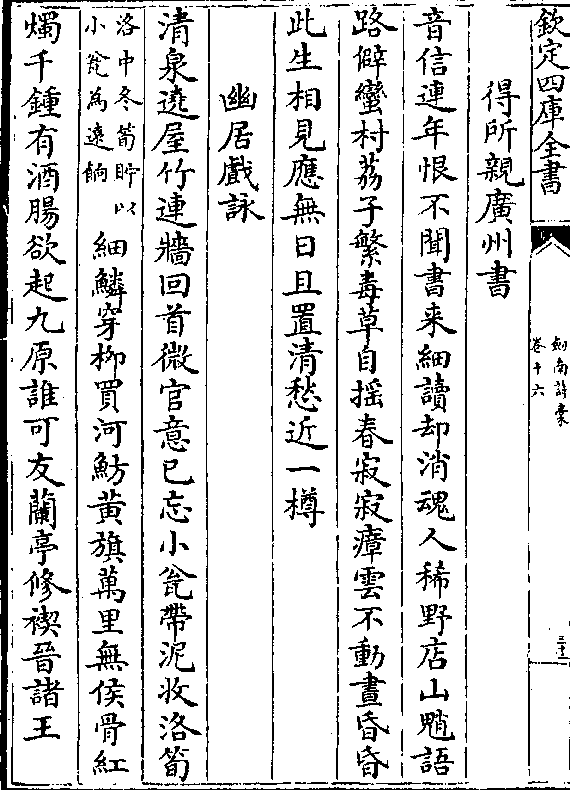 欽定四庫全書
劍南詩稾
卷十六
得所親廣州書
音信連年恨不聞書来細讀却消魂人稀野店山魈語
路僻蠻村荔子繁毒草自揺春寂寂瘴雲不動晝昏昏
此生相見應無日且置清愁近一樽
幽居戲詠
清泉遶屋竹連牆回首微官意已忘小瓮帶泥收洛筍
洛中冬筍貯以
小瓮為遠餉
細鱗穿桞買河魴黄旗萬里無侯骨紅
燭千鍾有酒腸欲起九原誰可友蘭亭修禊晉諸王